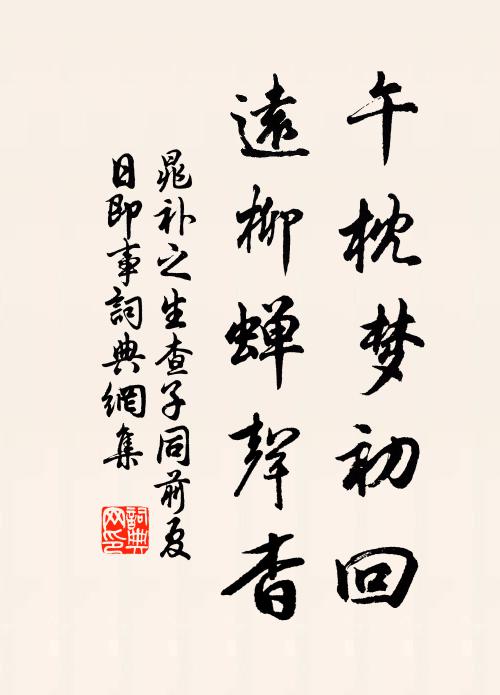 午枕梦初回
遠柳蝉聲杳
晁补之生查子同前夏
日即事詞典網集
詞典
网印